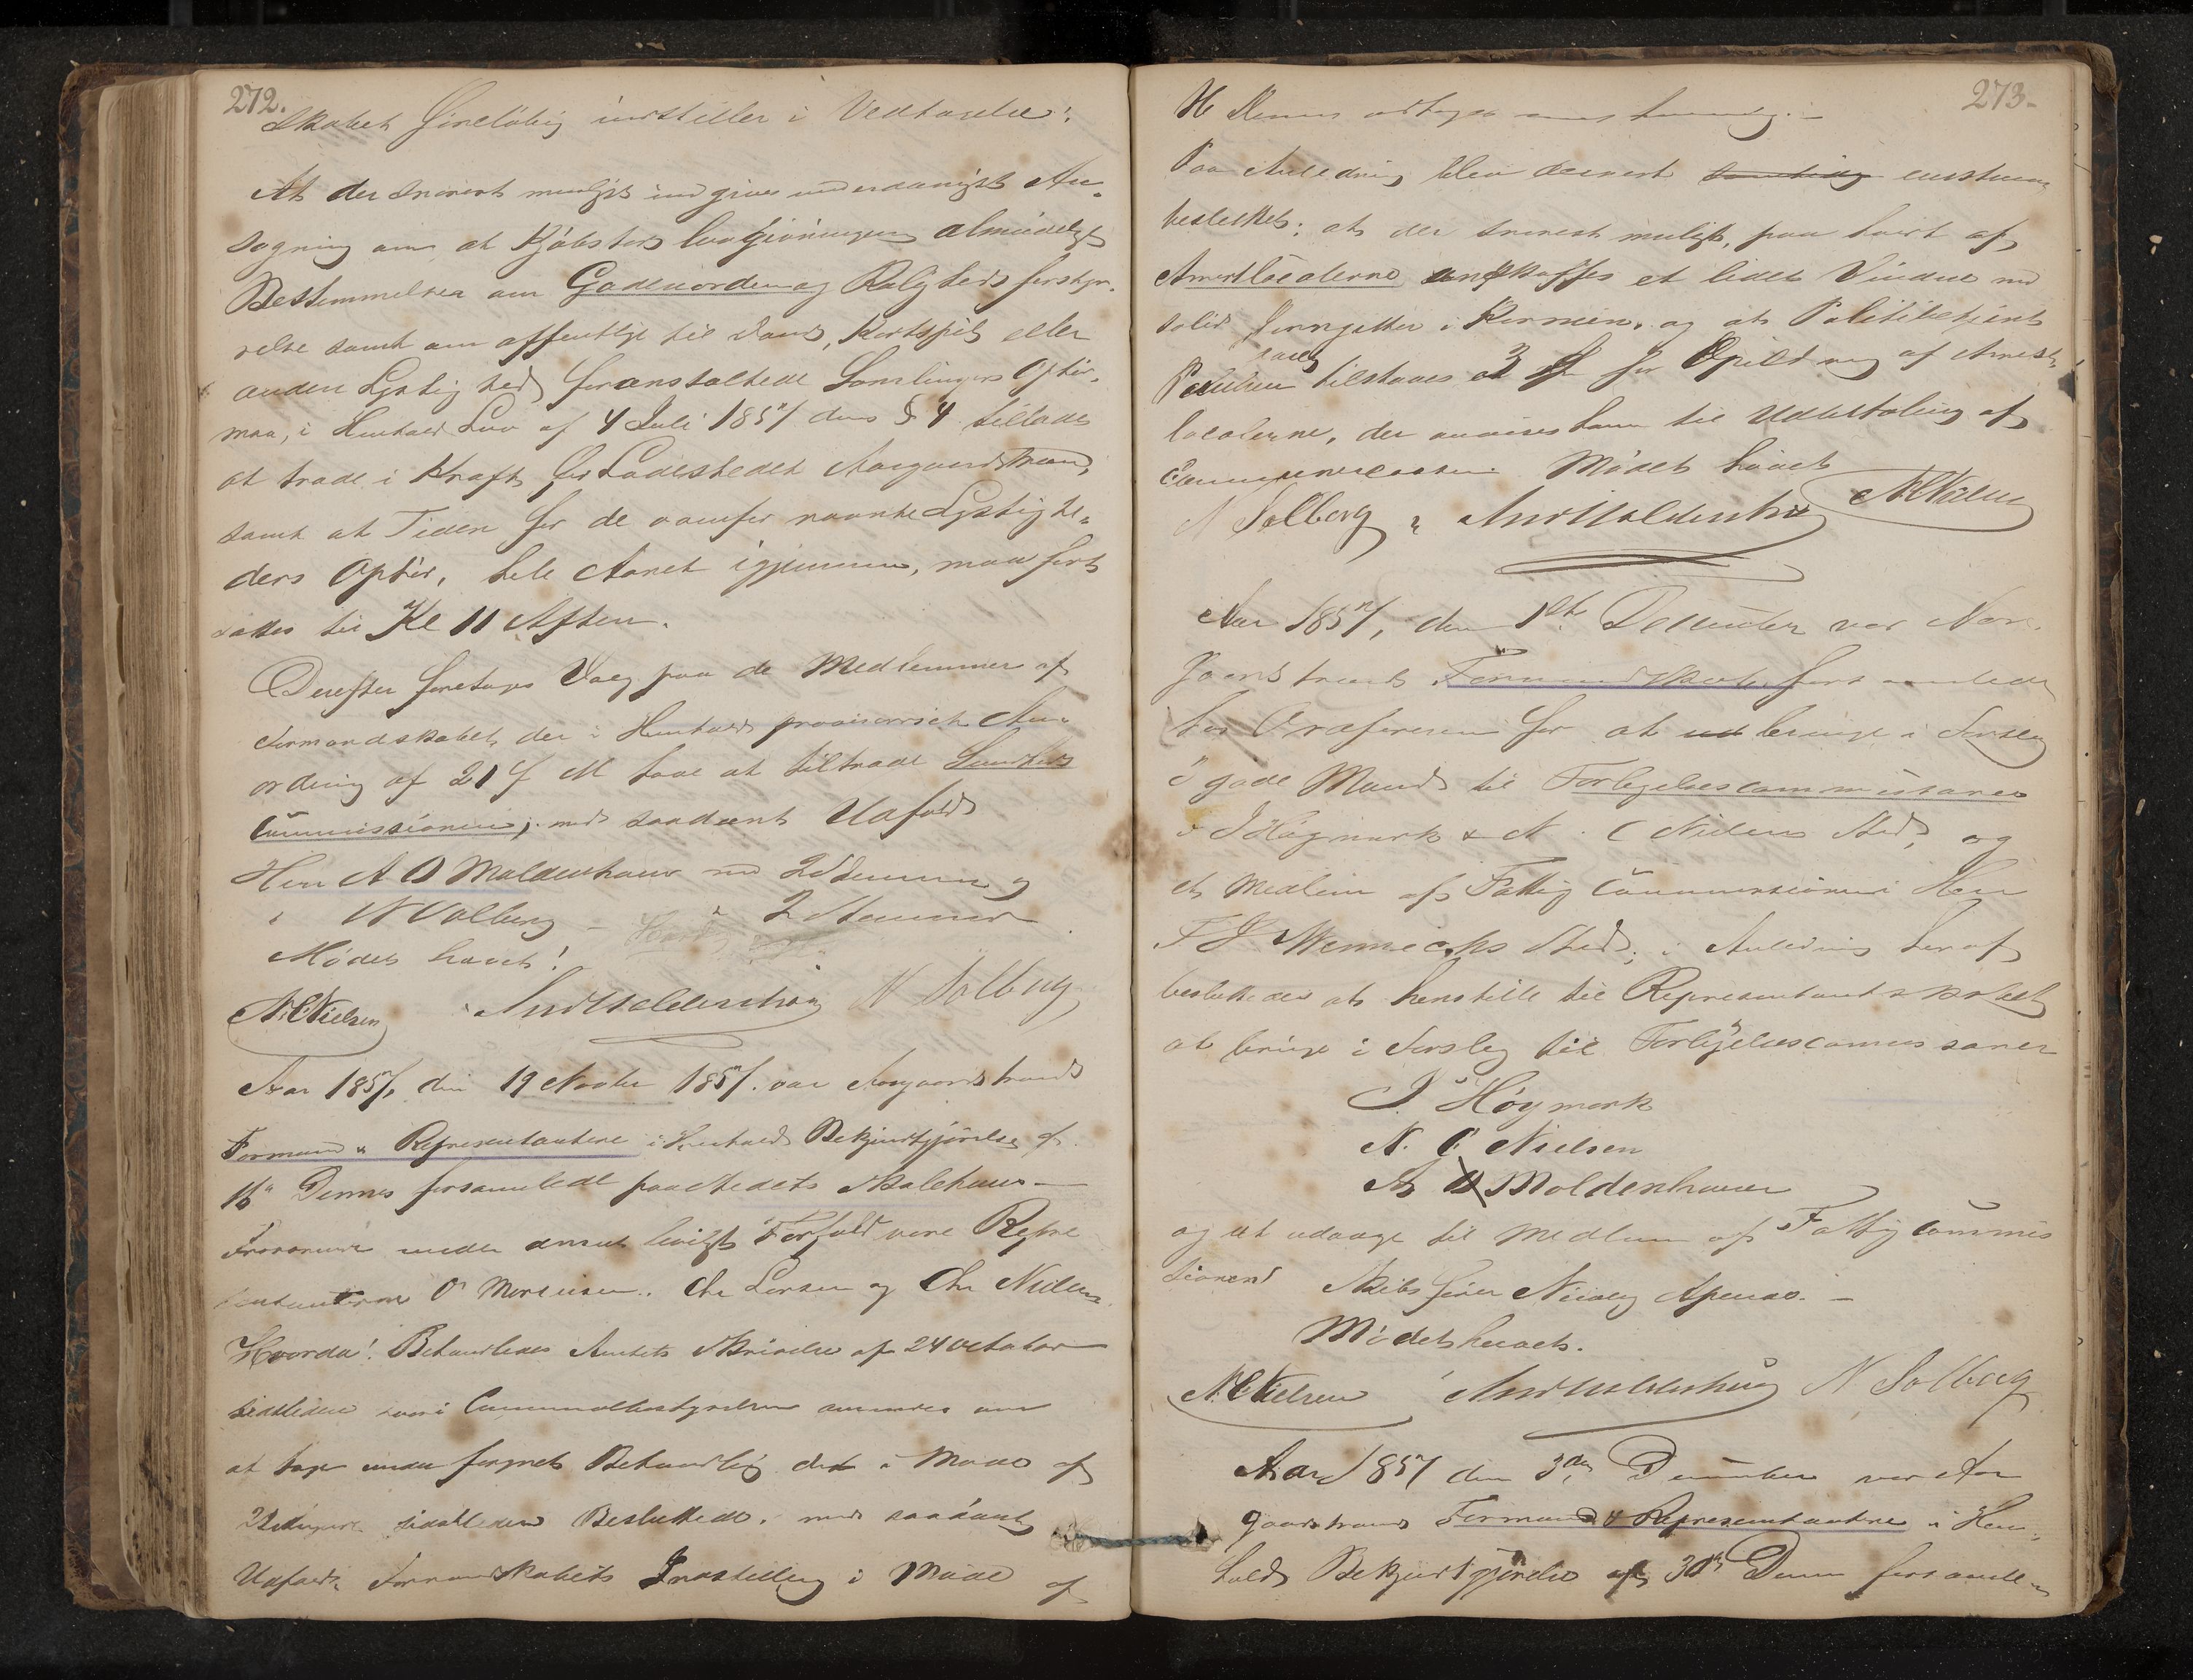 272.
Skabet foreløbig indstiller i Vedtagelse:
At der snarest muligst indgives underdanigst An-
søgning om at Kjøbstads lovgivningens almindelige
Bestemmelser om Gadeuorden og Roligheds forstyr-
relse samt om offentlige til Dands, Kortspil eller
anden Lystighed foranstaltede Samlingers Ophør,
maa, i Henhold Lov af 4 Juli 1857 dens § 4 tillades
at træde i Kraft for Ladestedet Aasgaardstrand,
samt at Tiden for de ovenfor nævnte Lystighe-
ders Ophør, hele Aaret igjennem, maa fort
sættes til Kl 11 Aften.
Derefter foretages Valg paa de Medlemmer af
Formandskabet, der i Henhold provisorisk An-
ordning af 21 f M have at tiltræde Sundheds
Commissionen, med saadant Udfald
Herr A D Moldenhauer med 2 Stemmer og
" N Solberg — " 2 Stemmer
Mødet hævet!
N.C. Nielsen And Moldenhauer N Solberg
Aar 1857, den 19 Novbr 1857. var Aasgaardstrands
Formænd & Repræsentantere i Henhold Bekjendtgjørelse af
16de Dennes forsamlede paa Stedets Skolehuus —
Fraværende uden anmeldt lovligt Forfald vare Repræ
sentanterne O Mortensen. Chr Larsen og Chr Nielsen.
Hvorda! Behandledes Amtets Skrivelse af 24 October
sidstleden hvori Communalbestyrelsen anmodes om
at tage under fornyet Behandling det i Møde af
sidstleden Besluttede. med saadant
Udfald. Formandskabets Indstilling i Møde af
273-
16 Dennes vedtoges
Paa Anledning blev dernæst eenstem
besluttet: at der snarest muligt, paa hvert af
Arrestlocalerne anskaffes et lidet Vindue med
solid Jerngitter i Karmen, og at Politibetjent
Poulsen tilstaaes 3 for Opildning af Arrest-
localerne, der anvises ham til Udbetaling af
Communecassen. Mødet hævet
N Solberg And Moldenhauer N.C. Nielsen
Aar 1857, den 1ste December var Aas-
gaardstrands Formandskab forsamlede
hos Ordføreren for at bringe i Forslag
2 gode Mænd til Forligelsescommissairer
i J Høymark & N. C Nielsens Sted, og
et Medlem af Fattig Commissionen i Herr
F J Wennechs Sted; i Anledning heraf
besluttedes at henstille til Repræsentantskabet
at bringe i Forslag til Forligelsescommissairer
J. Høymark
N. C. Nielsen
A D Moldenhauer
og at udvælge til Medlem af Fattig commis
sionen Skibsfører Nicolay Apenæs. —
Mødet hævet.
N.C. Nielsen And Moldenhauer N. Solberg
Aar 1857 den 3die December var Aas
gaardstrands Formænd & Repræsentantere i Hen-
hold Bekjendtgjørelse af 30te Dennes forsamle-